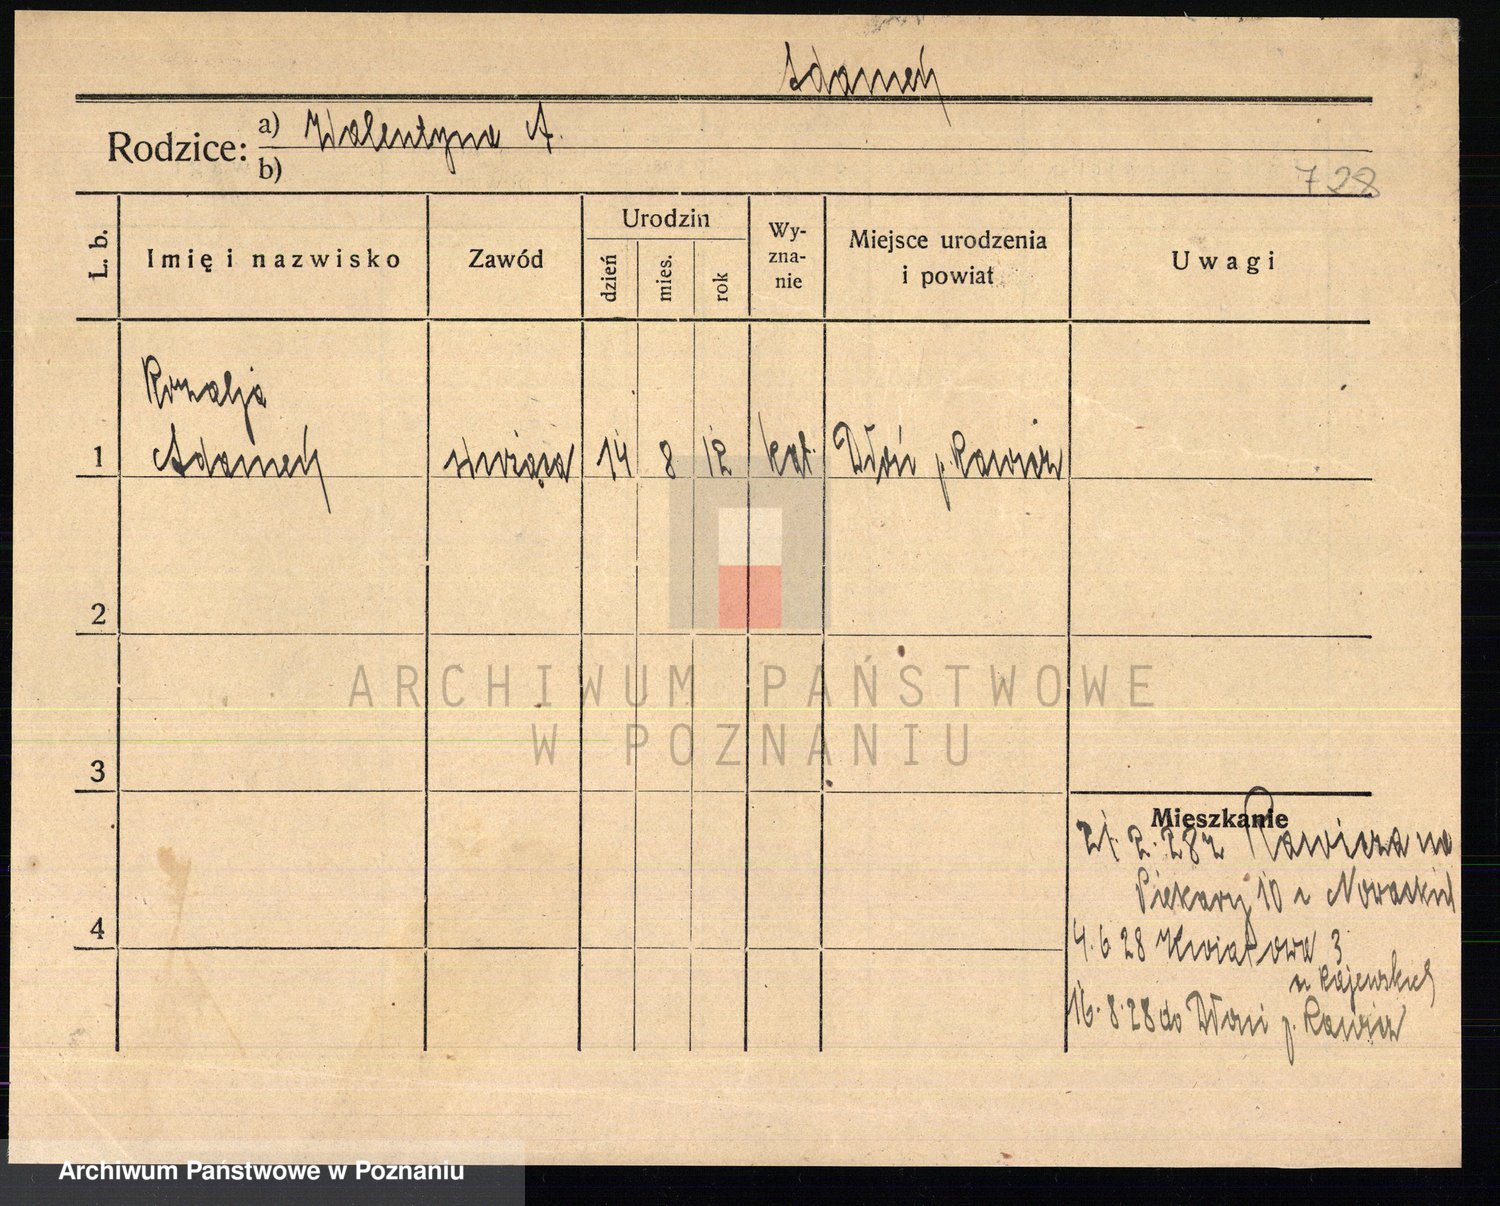 Adamek
Rodzice: a) Walentyna A.
b)
728
L. b. Imię i nazwisko Zawód Urodzin dzień mies. rok Wyznanie Miejsce urodzenia i powiat Uwagi
Rozalja
1 Adamek służąca 14 8 12 kat. Dłoń p. Rawicz
2
3
4
Mieszkanie
21. 2. 28 z Rawicza na
Piekary 10 u Nowackich
4. 6 28 Kwiatowa 3
u Rajewskich
16. 8. 28 do Dłoni p. Rawicz
ARCHIWUM PAŃSTWOWE
W POZNANIU
Archiwum Państwowe w Poznaniu